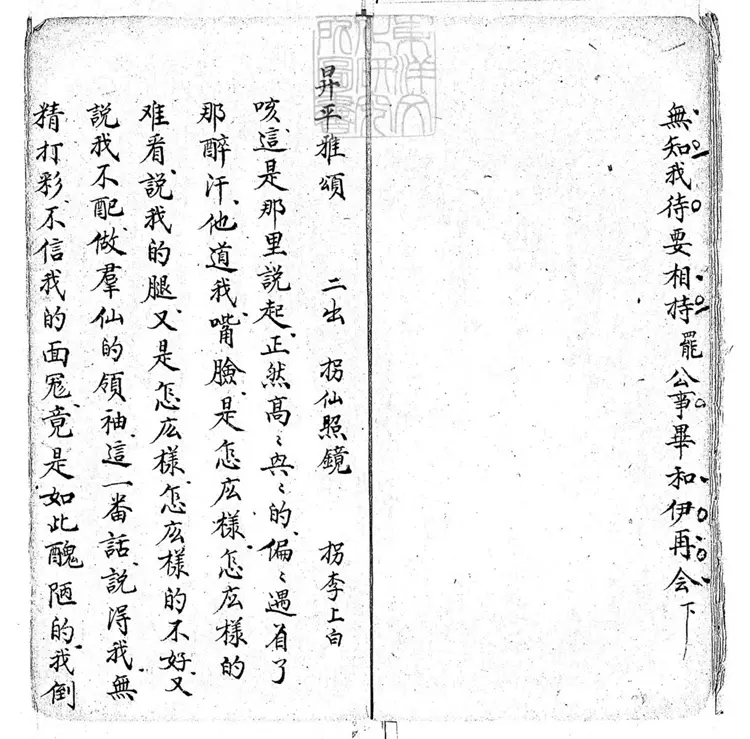 無知我待要相持罷公事畢和伊再会下
昇平雅頌　二出　拐仙照鏡　拐李上白
咳這是那里説起正然髙〻兴〻的偏〻遇着了
那醉汗他道我嘴臉是怎庅樣怎庅樣的
难看説我的腿又是怎庅樣怎庅樣的不好又
説我不配做羣仙的領袖這一番話説得我無
精打彩不信我的面宽竟是如此醜陋的我倒
東洋文化研究所圖書